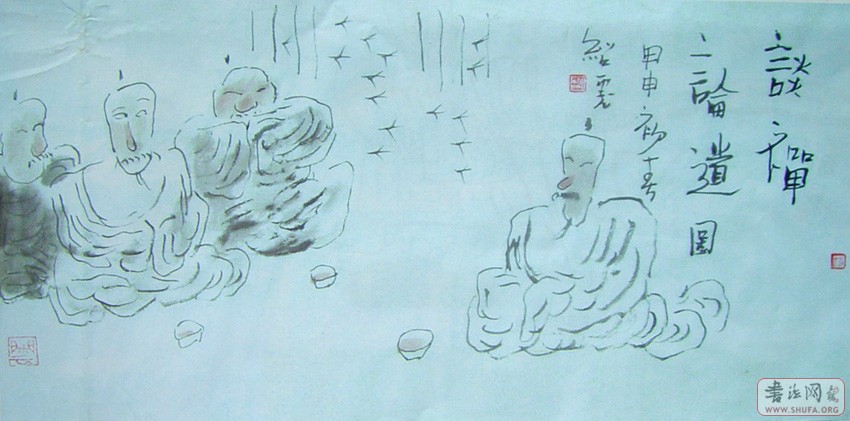 談禪
論道圖
甲申初春
書法网
WWW.SHUFA.ORG